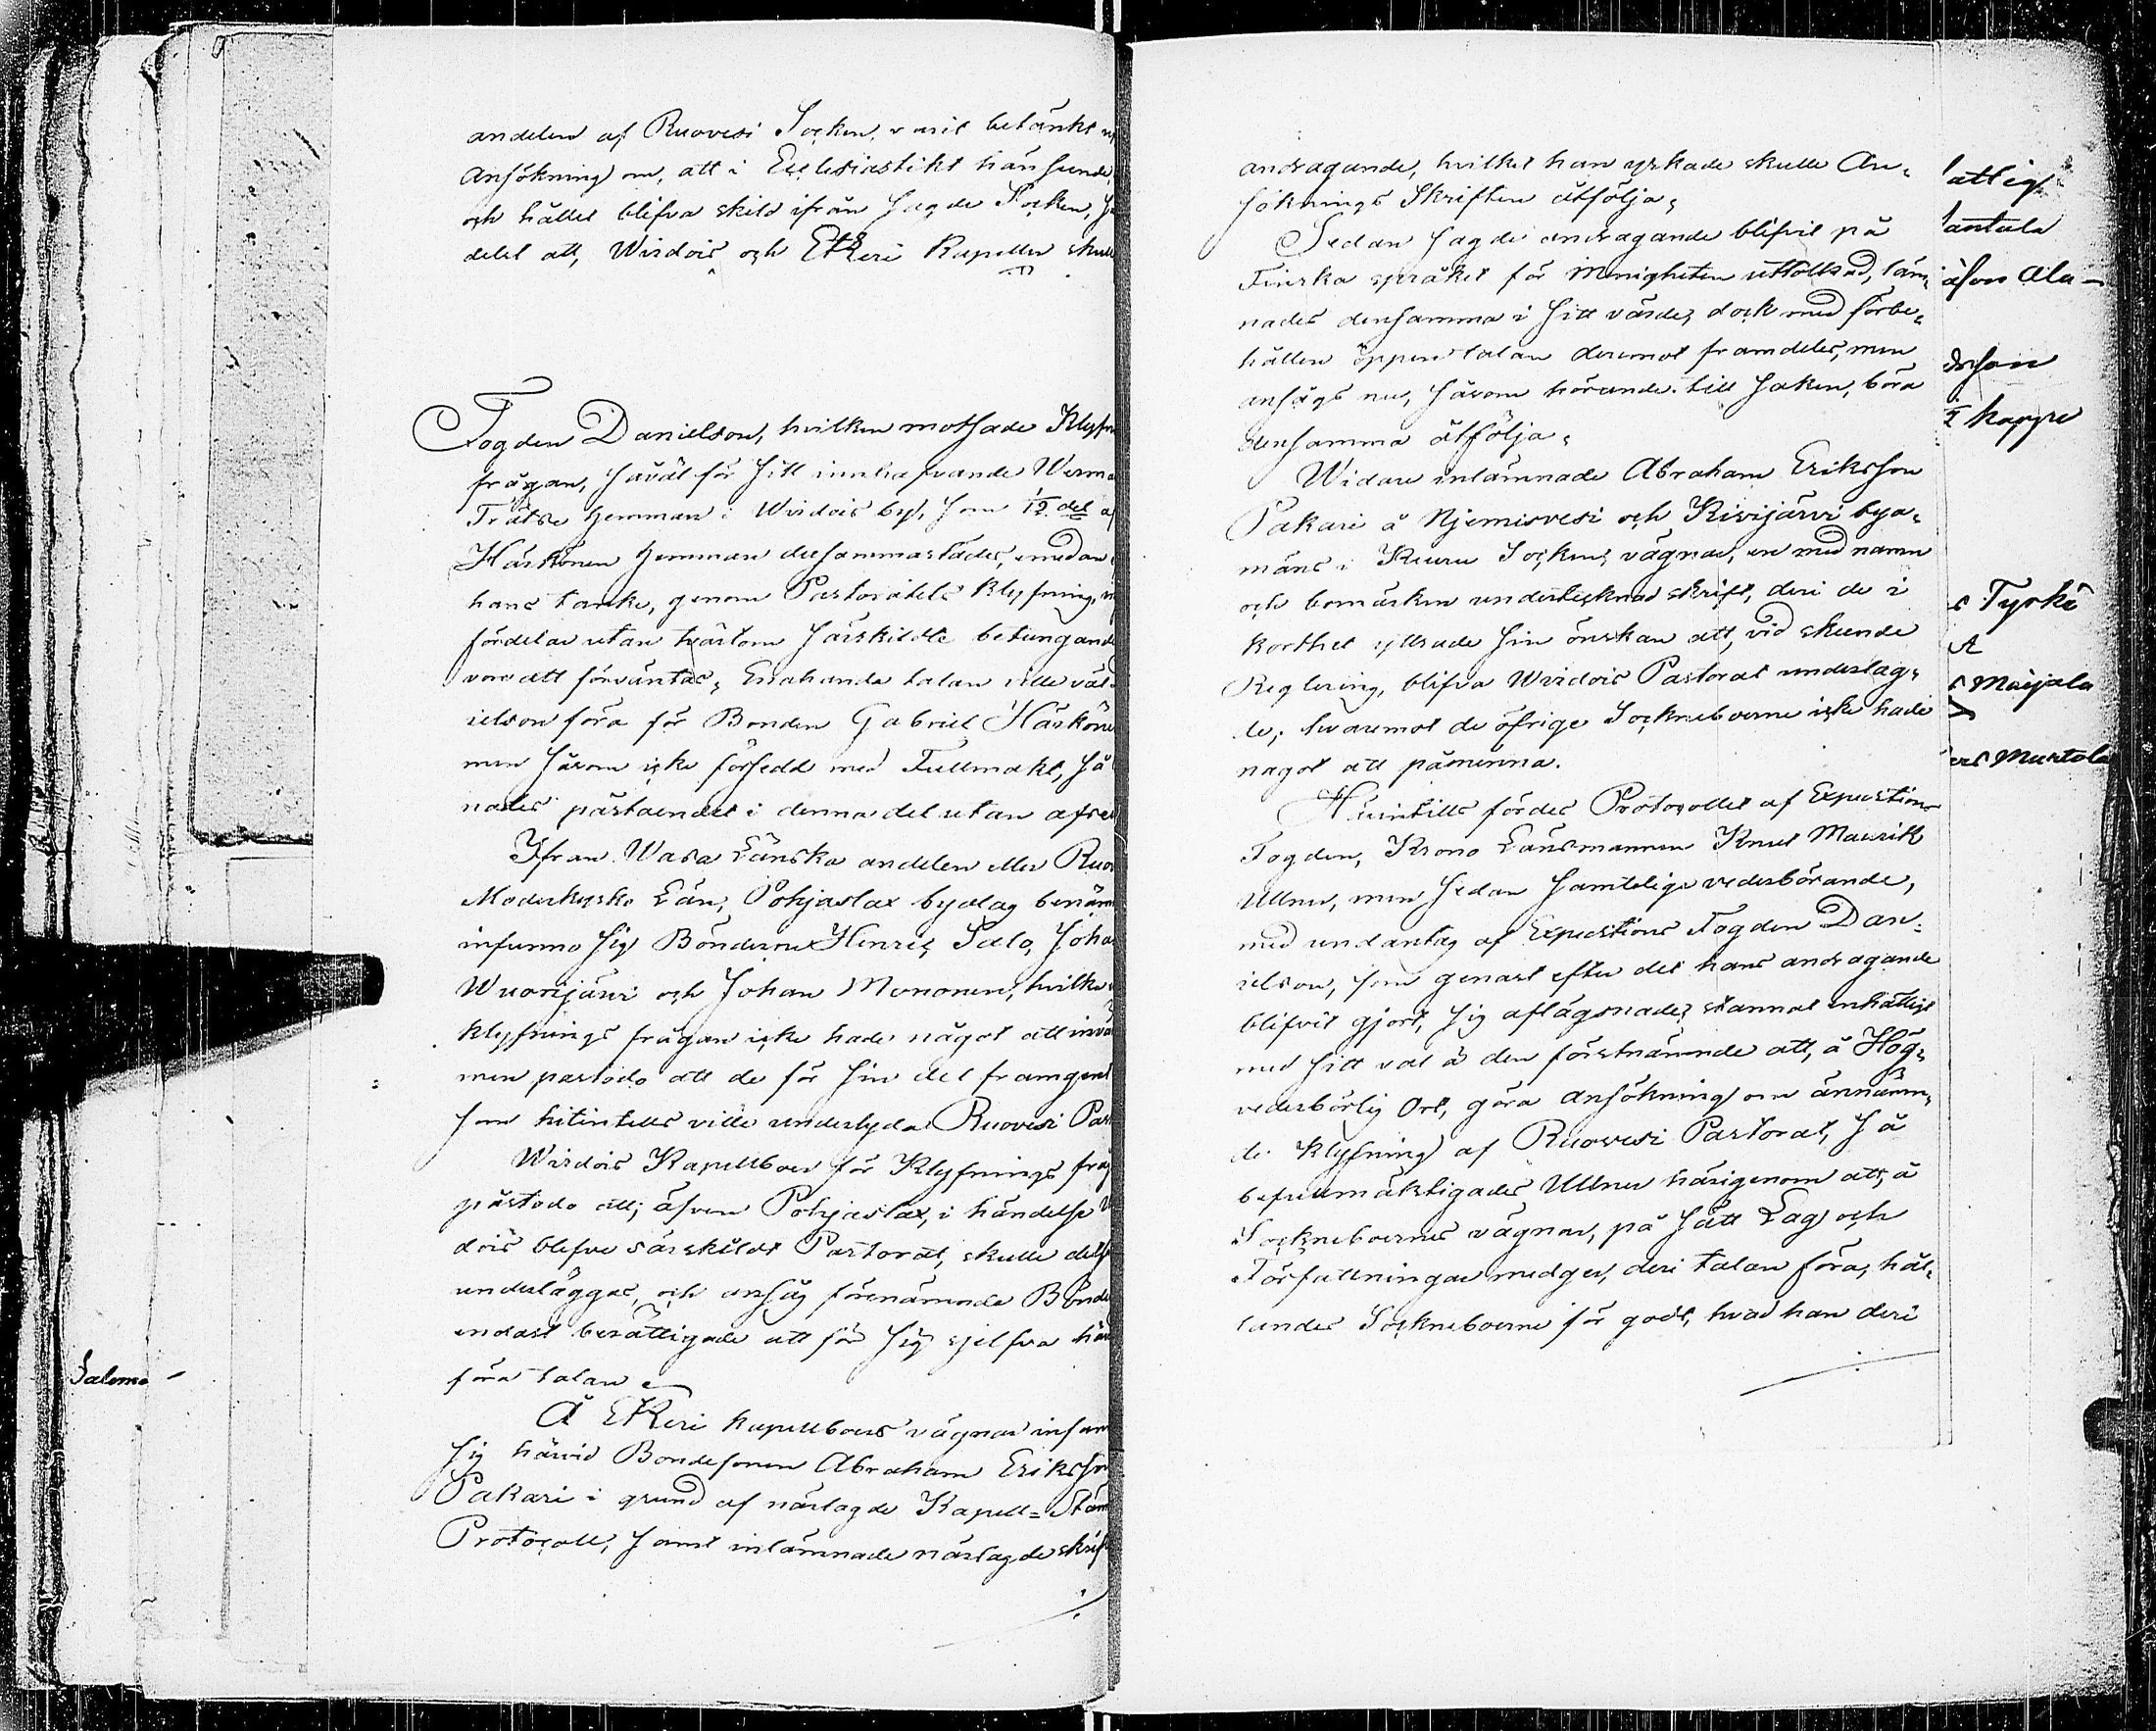 andelen af Ruovesi Socken, varit betänkt
ansökning om, att i Ecclesiastikt hänseende,
och hållet blifva skild ifrån sagde Socken,
delet att, Wirdois och Etseri Kapeller skulle
Fogden Danielson, hvilken motsade Klyfn
frågan, såväl för sitt innehafvande
Träsko hemman i Wirdois by, som 1/2 del af
Härkönen hemman dersammastädes, emedan
hans tanke, genom Pastoratets klyfning,
fördelar utan tvärtom särskildte betungande
vore att förväntas, Enahanda talan ville
ielson föra för Bonden Gabriel Härköne
men såsom icke försedd med Fullmakt, så
nades påståendet i denna del utan afse
Ifrån Wasa Länska andelen eller Ruo
Moderkyrko Län, Pohjaslax byalag benäm
infunno sig Bönderne Henric Salo, Joha
Wuorijärvi och Johan Mononen, hvilka
klyfnings frågan icke hade något att invä
men påstodo att de för sin del framgent
som hitintills ville underlyda Ruovesi Pas
Wirdois Kapellboer för Klyfnings fråg
påstodo att, äfven Pohjaslax, i händelse
dois blefve särskildt Pastorat, skulle
underläggas, och ansåg förenämnde Bönde
endast berättigade att för sig sjelfva här
föra talan
Å Etseri kapellboers vägnar infan
sig härvid Bondesonen Abraham Eriksson
Pakari i grund af närlagde Kapell=Stäm
Protocoll, samt inlämnade närlagde skrift
Salomo -
andragande, hvilket han yrkade skulle An=
söknings Skriften åtfölja,
Sedan sagde andragande blifvit på
Finska språket för Menigheten uttolkad, läm=
nades densamma i sitt värde, dock med förbe=
hållen öppen talan deremot framdeles, men
ansågs nu, såsom hörande till saken, böra
densamma åtfölja,
Widare inlämnade Abraham Eriksson
Pakari å Njemisvesi och Kivijärvi bya=
mäns i Keuru Sockens vägnar, en med namn
och bomärken undertecknad skrift, deri de i
korthet yttrade sin önskan att, vid skeende
Reglering, blifva Wirdois Pastorat underlag=
de, hvaremot de öfrige Sockneboerne icke hade
nagot att påminna.
Hitintills fördes Protocollet af Expeditions
Fogden, Krono Länsmannen Knut Maurits
Ullner, men sedan samtelige vederbörande,
med undantag af Expeditions Fogden Dan=
ielson, som genast efter det hans andragande
blifvit gjort, sig aflägsnade, stannat enhälligt
med sitt val å den förstnämnde att, å Hög=
vederbörlig Ort, göra ansökning om ännäm=
de Klyfning af Ruovesi Pastorat, så
befullmäktigades Ullner härigenom att, å
Sockneboernes vägnar, på sätt Lag och
Författningar medger, deri talan föra, hål=
landes Sockneboerne för godt, hvad han deri
attig
antala
åson Ala-
dsson
kappe
s Tyrkö
s Maijala
ers Murtola